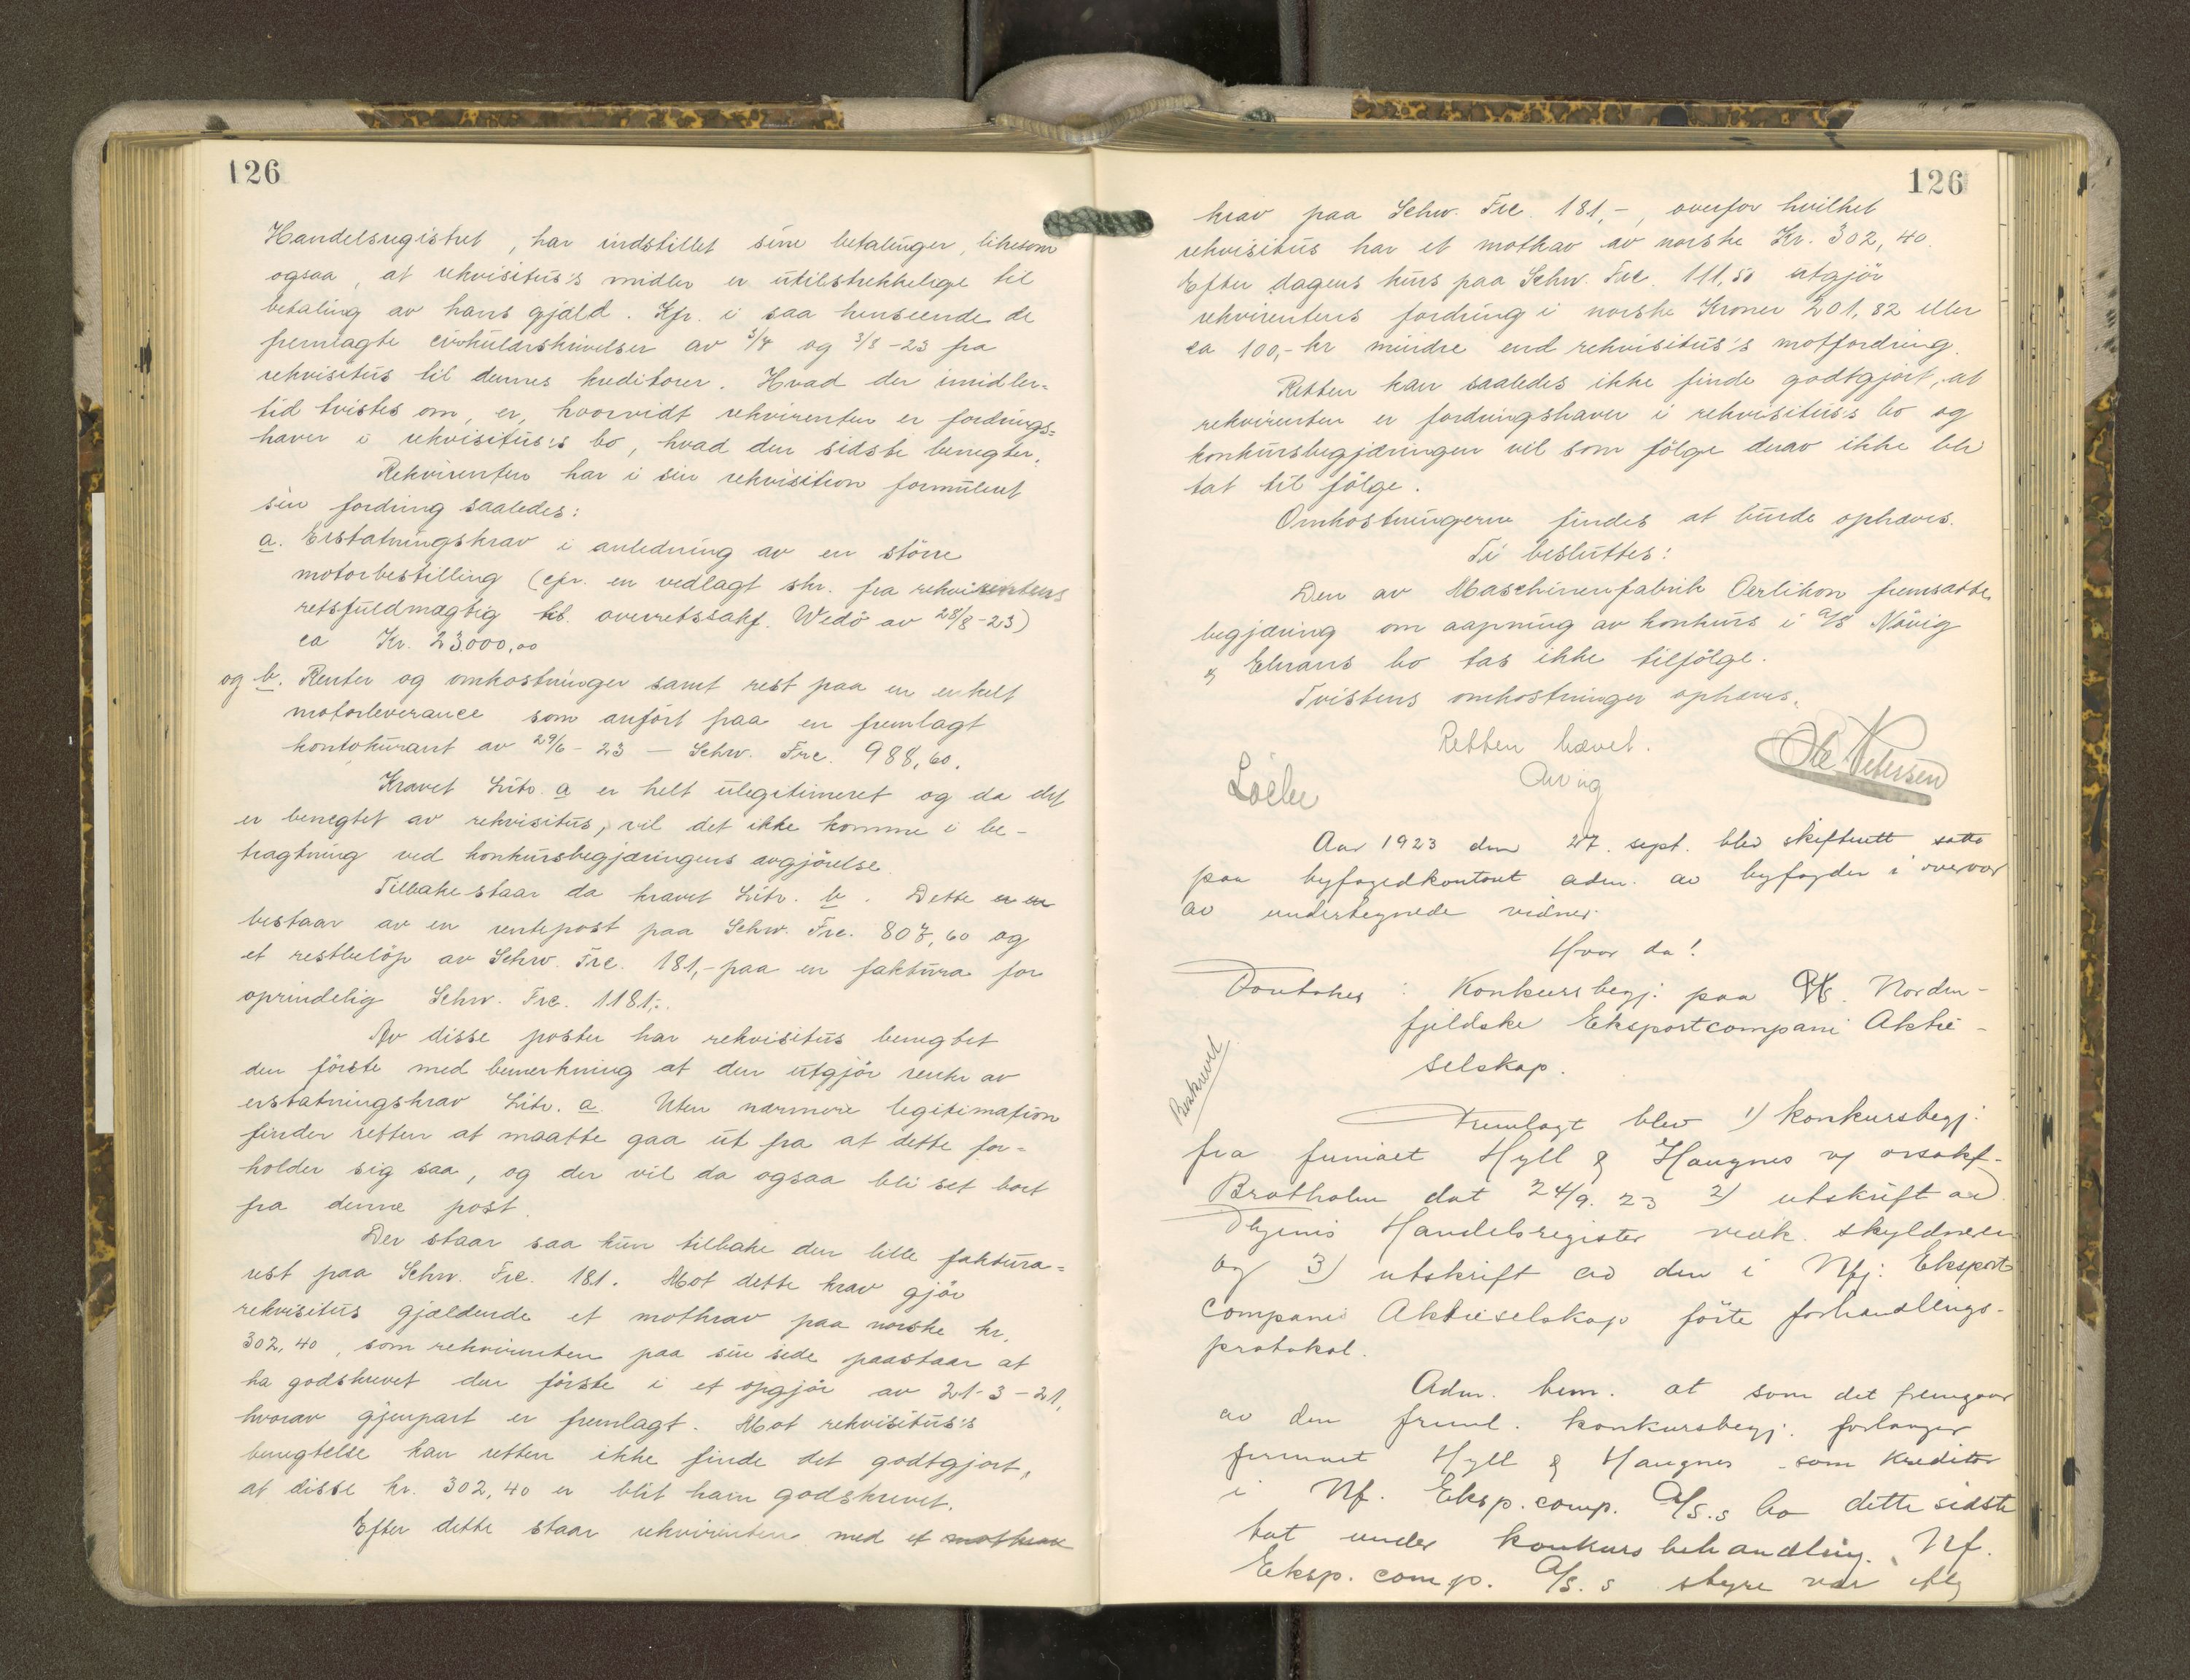 126
Handelsregistret, har indstillet sine betalinger, likesom
ogsaa, at rekvisitus's midler er utilstrekkelige til
betaling av hans gjæld. Kfr. i saa henseende de
fremlagte cirkulærskrivelser av 3/4 og 3/8-23 fra
rekvisitus til dennes kreditorer. Hvad der imidler=
tid tvistes om, er, hvorvidt rekvirenten er fordrings=
haver i rekvisitus's bo, hvad den sidste benegter.
Rekvirenten har i sin rekvisition formulert
sin fordring saaledes:
a. Erstatningskrav i anledning av en större
motorbestilling (cfr. en vedlagt skr. fra rekvirentens
retsfuldmægtig til overretssakf. Wedö av 28/8-23)
ca Kr. 23000,00
og b. Renter og omkostninger samt rest paa en enkelt
motorleverance som anfört paa en fremlagt
kontokurant av 29/6-23 — Schw. Frc. 988,60.
Kravet Litr. a er helt ulegitimeret og da det
er benegtet av rekvisitus, vil det ikke komme i be-
tragtning ved konkursbegjæringens avgjörelse.
Tilbake staar da kravet Litr. b. Dette er en
bestaar av en rentepost paa Schw. Frc. 807,60 og
et restbelöp av Schw. Frc. 181,- paa en faktura for
oprindelig Schw. Frc. 1181,-.
Av disse poster har rekvisitus benegtet
den förste med bemerkning at den utgjör rente av
erstatningskrav Litr. a. Uten nærmere legitimation
finder retten at maatte gaa ut fra at dette for=
holder sig saa, og der vil da ogsaa bli set bort
fra denne post.
Der staar saa kun tilbake den lille faktura=
rest paa Schw. Frc. 181. Mot dette krav gjör
rekvisitus gjældende et motkrav paa norske kr.
302,40, som rekvirenten paa sin side paastaar at
ha godskrevet den förste i et opgjör av 21-3-21,
hvorav gjenpart er fremlagt. Mot rekvisitus's
benegtelse kan retten ikke finde det godtgjort,
at disse kr. 302,40 er blit ham godskrevet.
Efter dette staar rekvirenten med et motkrav
126
krav paa Schw. Frc. 181,-, overfor hvilket
rekvisitus har et motkrav av norske Kr. 302,40.
Efter dagens kurs paa Schw. Frc. 111,50 utgjör
rekvirentens fordring i norske Kroner 201,82 eller
ca 100,- kr mindre end rekvisitus's motfordring.
Retten kan saaledes ikke finde godtgjort, at
rekvirenten er fordringshaver i rekvisitus's bo og
konkursbegjæringen vil som fölge derav ikke bli
tat til fölge.
Omkostningerne findes at burde ophæves.
Ti besluttes:
Den av Maschinenfabrik Oerlikon fremsatte
begjæring om aapning av konkurs i A/S Növig
& Ehrans bo tas ikke tilfölge.
Tvistens omkostninger ophæves.
Retten hævet.
Arvig
Ole Petersen
Aar 1923 den 27. sept. blev skifterett satt
paa byfogedkontoret adm. av byfogden i overvær
av undertegnede vidner.
Hvor da!
Foretokes: Konkursbegj. paa A/S. Norden-
fjeldske Eksportcompani Aktie-
selskap.
Beskrevet
Fremlagt blev 1) konkursbegj.
fra firmaet Hyll & Haugnes v/ orsakf.
Bratholm dat 24/9. 23 2) utskrift av
Thjems Handelsregister vedk. skyldneren
og 3) utskrift av den i Nfj: Eksport
Companis Aktieselskap förte forhandlings-
protokol.
Adm. bem. at som det fremgaar
av den freml. konkursbegj. forlanger
firmaet Hyll & Haugnes som kreditor
i Nf. Eksp. comp. A/S.s bo dette sidste
tat under konkursbehandling. Nf.
Eksp. comp. A/S.s styre var